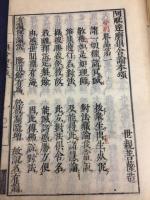 阿毗達磨俱舍論本頌
世親菩薩造
分別界品第一
諸一切種諸冥滅 拔眾生出生死泥
敬禮如是如理師 對法藏論我當說
淨慧隨行名對法 及能得此諸慧論
攝彼勝義依彼故 此立對法俱舍名
若離擇法定無餘 能滅諸惑勝方便
由惑世間漂有海 因此傳佛說對法
有漏無漏法 除道餘有為 於彼漏隨增 故說名有漏